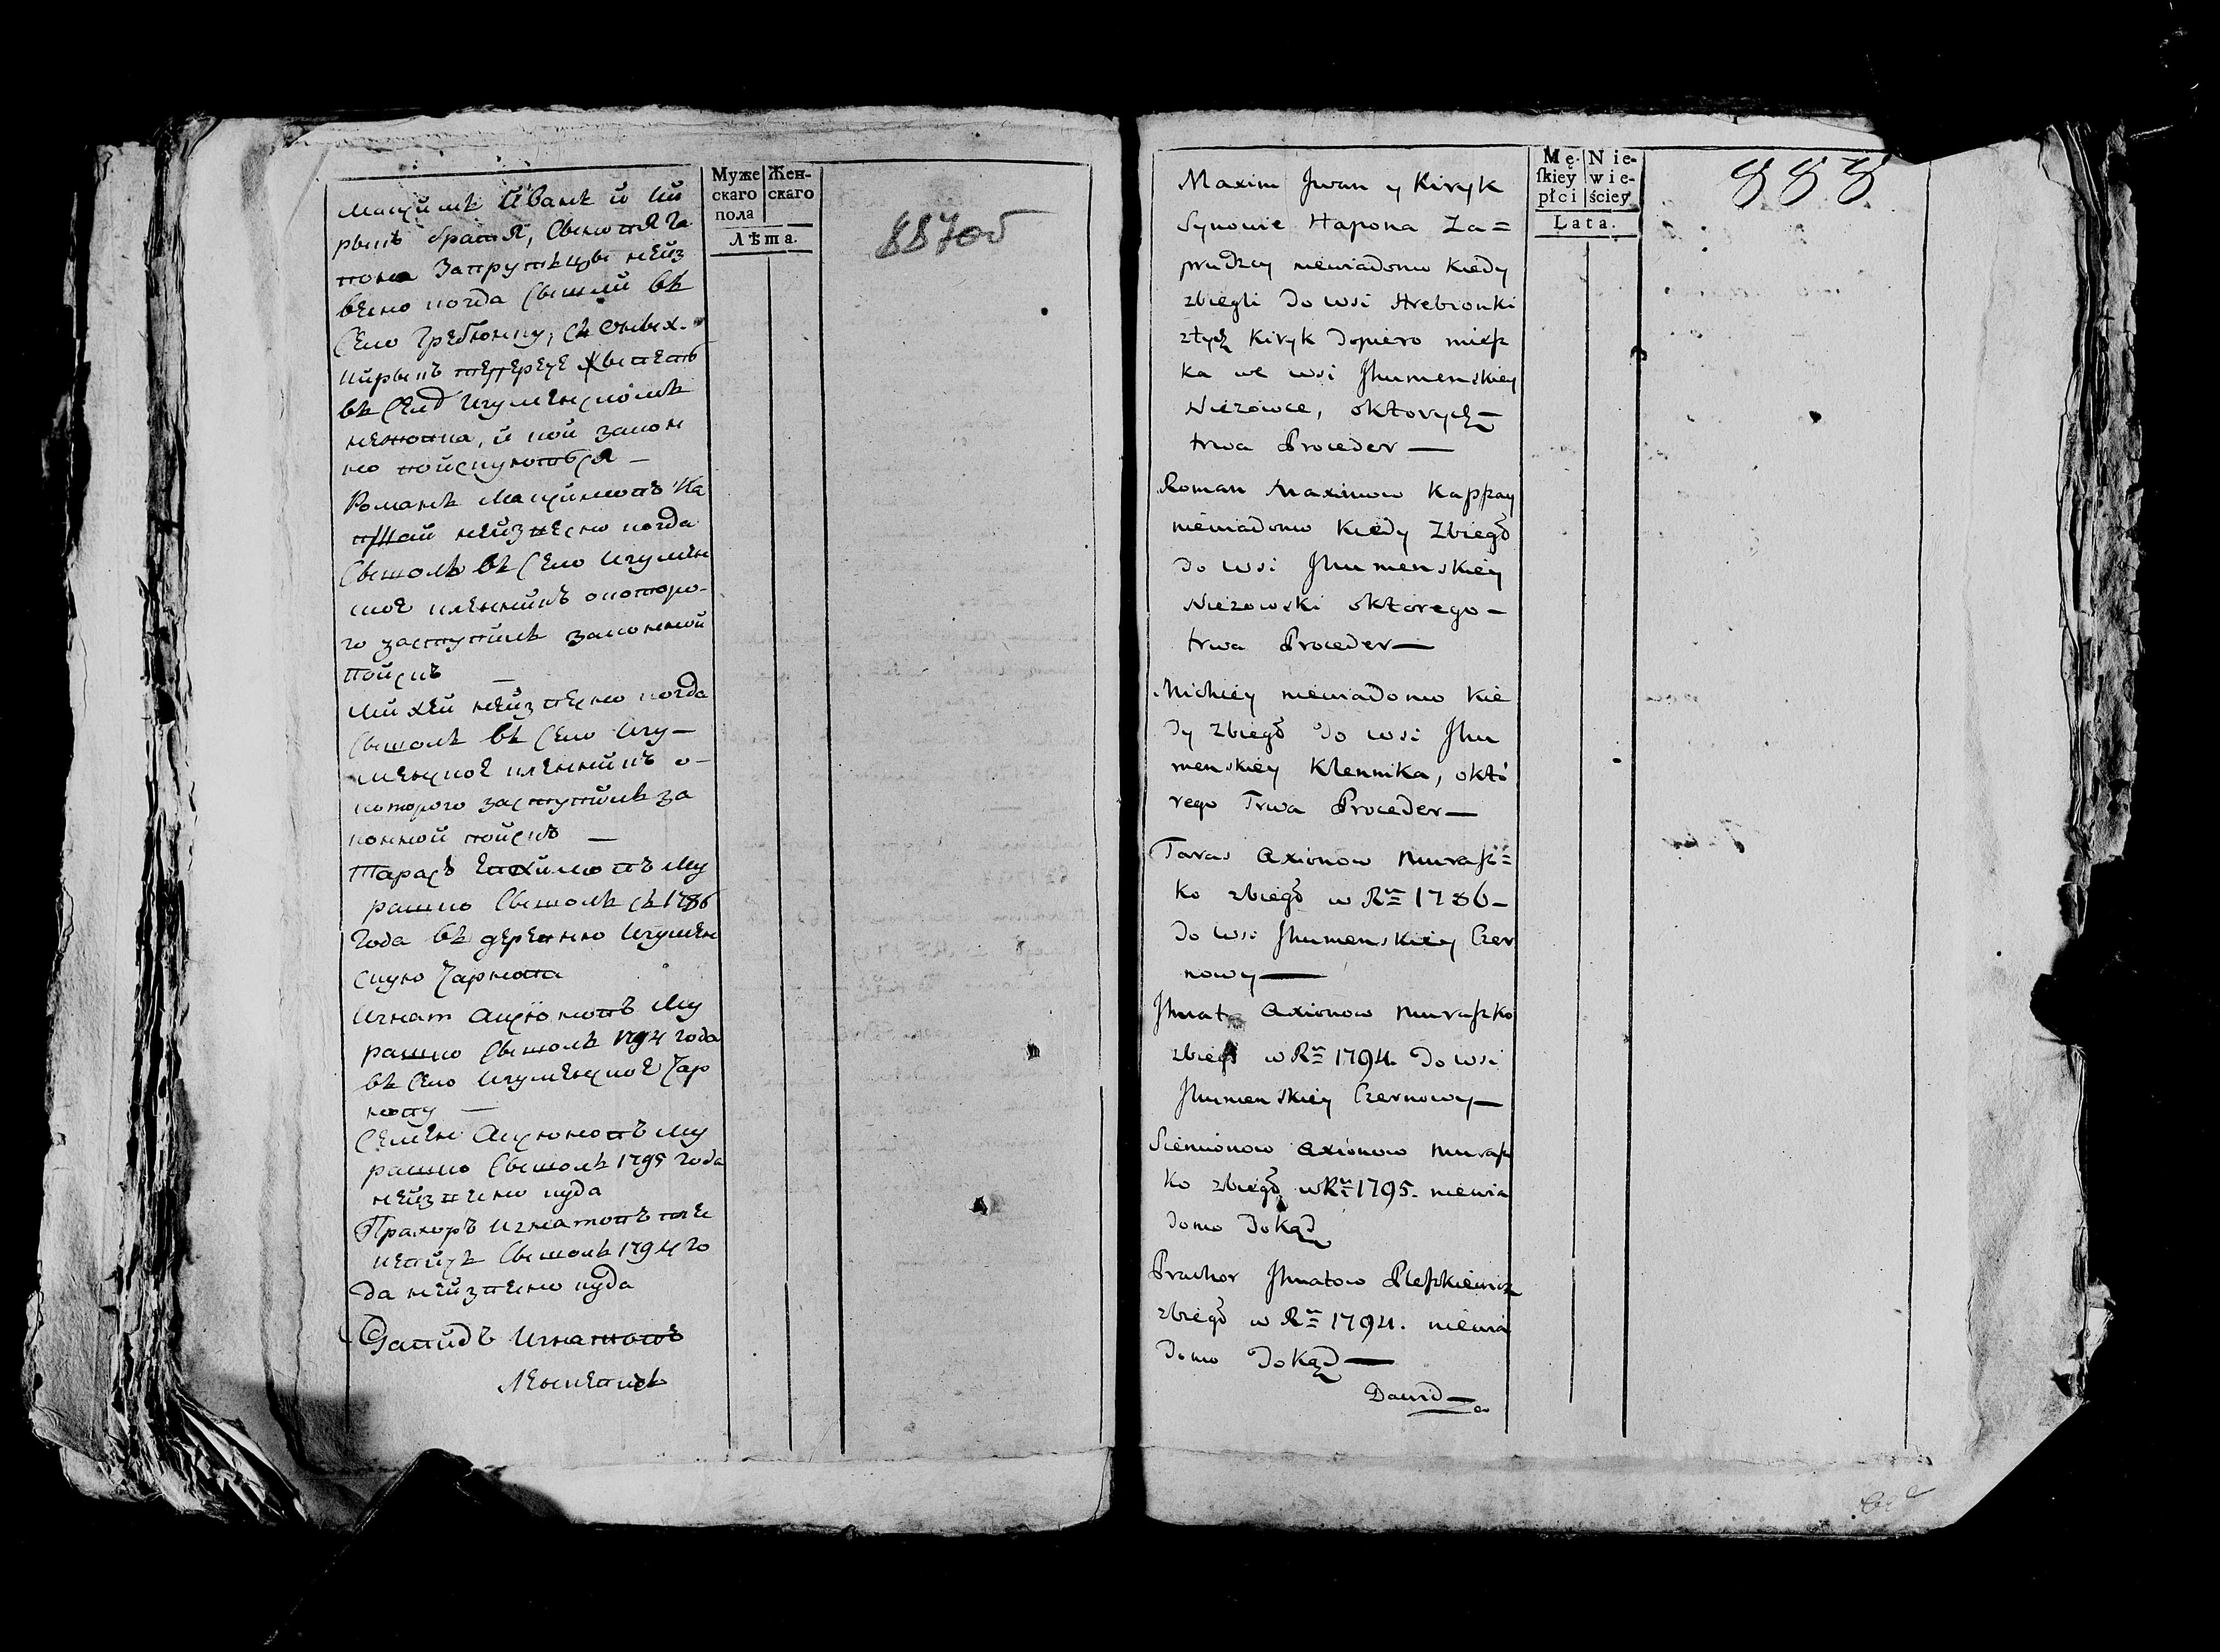 Муже
скаго
пола
Жен-
скаго
Лѣта.
887об
Максимъ Иванъ и Ки
рыкъ братья, сыновья Га
пона Запрутьцы неиз
весно когда сышли въ
село Гребіонку, съ оных
Кирыкъ теперече жыветь
въ селѣ Игуменскомъ
и кои закон
но поискуються —
Романъ Максимовъ Ка
пшай неизвесно когда
сышолъ въ село Игумен
ское Кленникъ о которо-
го заступилъ законной
поискъ —
Михей неизвесно когда
сышолъ въ село Игу—
менское Кленникъ о-
которого заступилъ за
конной поискъ —
Тарасъ Мu
рашко сышолъ съ 1786
года въ деревню Игумен
скую Чарнова
Игнат Аксюновъ Му
рашко сышолъ 1794 года
въ село Игуменское Чар
нову —
Семен Аксюновъ Му
рашко сышолъ 1795 года
неизвесно куда
Прахоръ Игнатовъ
сышолъ 1794 го
да неизвесно куда
Давидъ Игнатовъ
Mę-
skiey
płci
Nie-
wie-
ściey
Lata.
888
Maxim Jwan y Kiryk
Synowie Hapona Za=
prudzcy niewiadomo kiedy
zbiegli do wsi Hrebionki
ztych Kiryk dopiero miesz
ka we wsi Jhumenskiey
Niezowce, oktorych—
trwa Proceder—
Roman Maximow Kapszay
niewiadomo kiedy zbiegł
do wsi Jhumenskiey
Niezowski oktorego—
trwa Proceder—
Michiey niewiadomo kie
dy zbiegł do wsi Jhu
menskiey Klennika, októ
rego Trwa Proceder—
Taras Axionow Murasz=
ko zbiegł w Rᵘ 1786—
do wsi Jhumenskiey Czer
nowy—
Jhnat Axionow Muraszko
zbiegł w Rᵘ 1794. do wsi
Jhumenskiey Czernowy—
Siemionow Axionow Murasz
ko zbiegł w Rᵘ 1795. niewia
domo dokąd
Prachor Jhnatow Pleszkiewicz
zbiegł w Rᵘ 1794. niewia
domo dokąd—
Dawid—